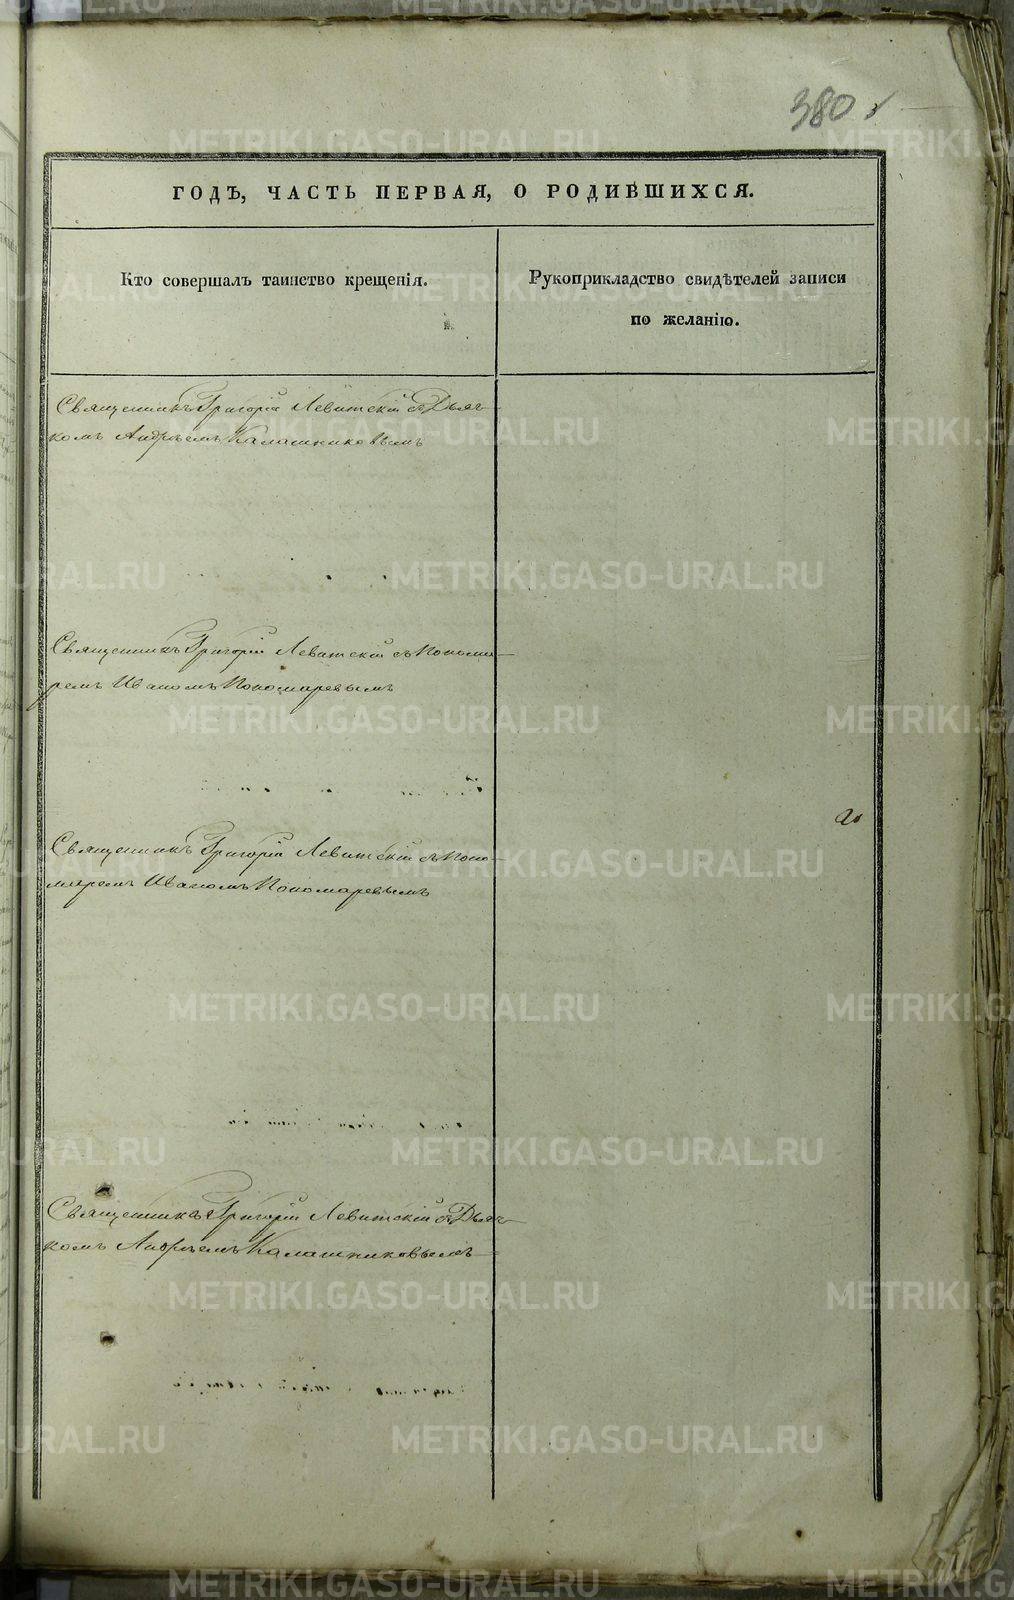 380
ГОДЪ, ЧАСТЬ ПЕРВАЯ, О РОДИВШИХСЯ.
Кто совершалъ таинство крещенія.
Рукоприкладство свидѣтелей записи
по желанію.
Священникъ Григорій Левитскій съ Дьяч-
комъ Андреемъ Калашниковымъ
Священникъ Григорій Левитскій съ Понома-
ремъ Иваномъ Пономаревымъ
Священникъ Григорій Левитскій съ Поно-
маремъ Иваномъ Пономаревымъ
Священникъ Григорій Левитскій съ Дьяч-
комъ Андреемъ Калашниковымъ
METRIKI.GASO-URAL.RU